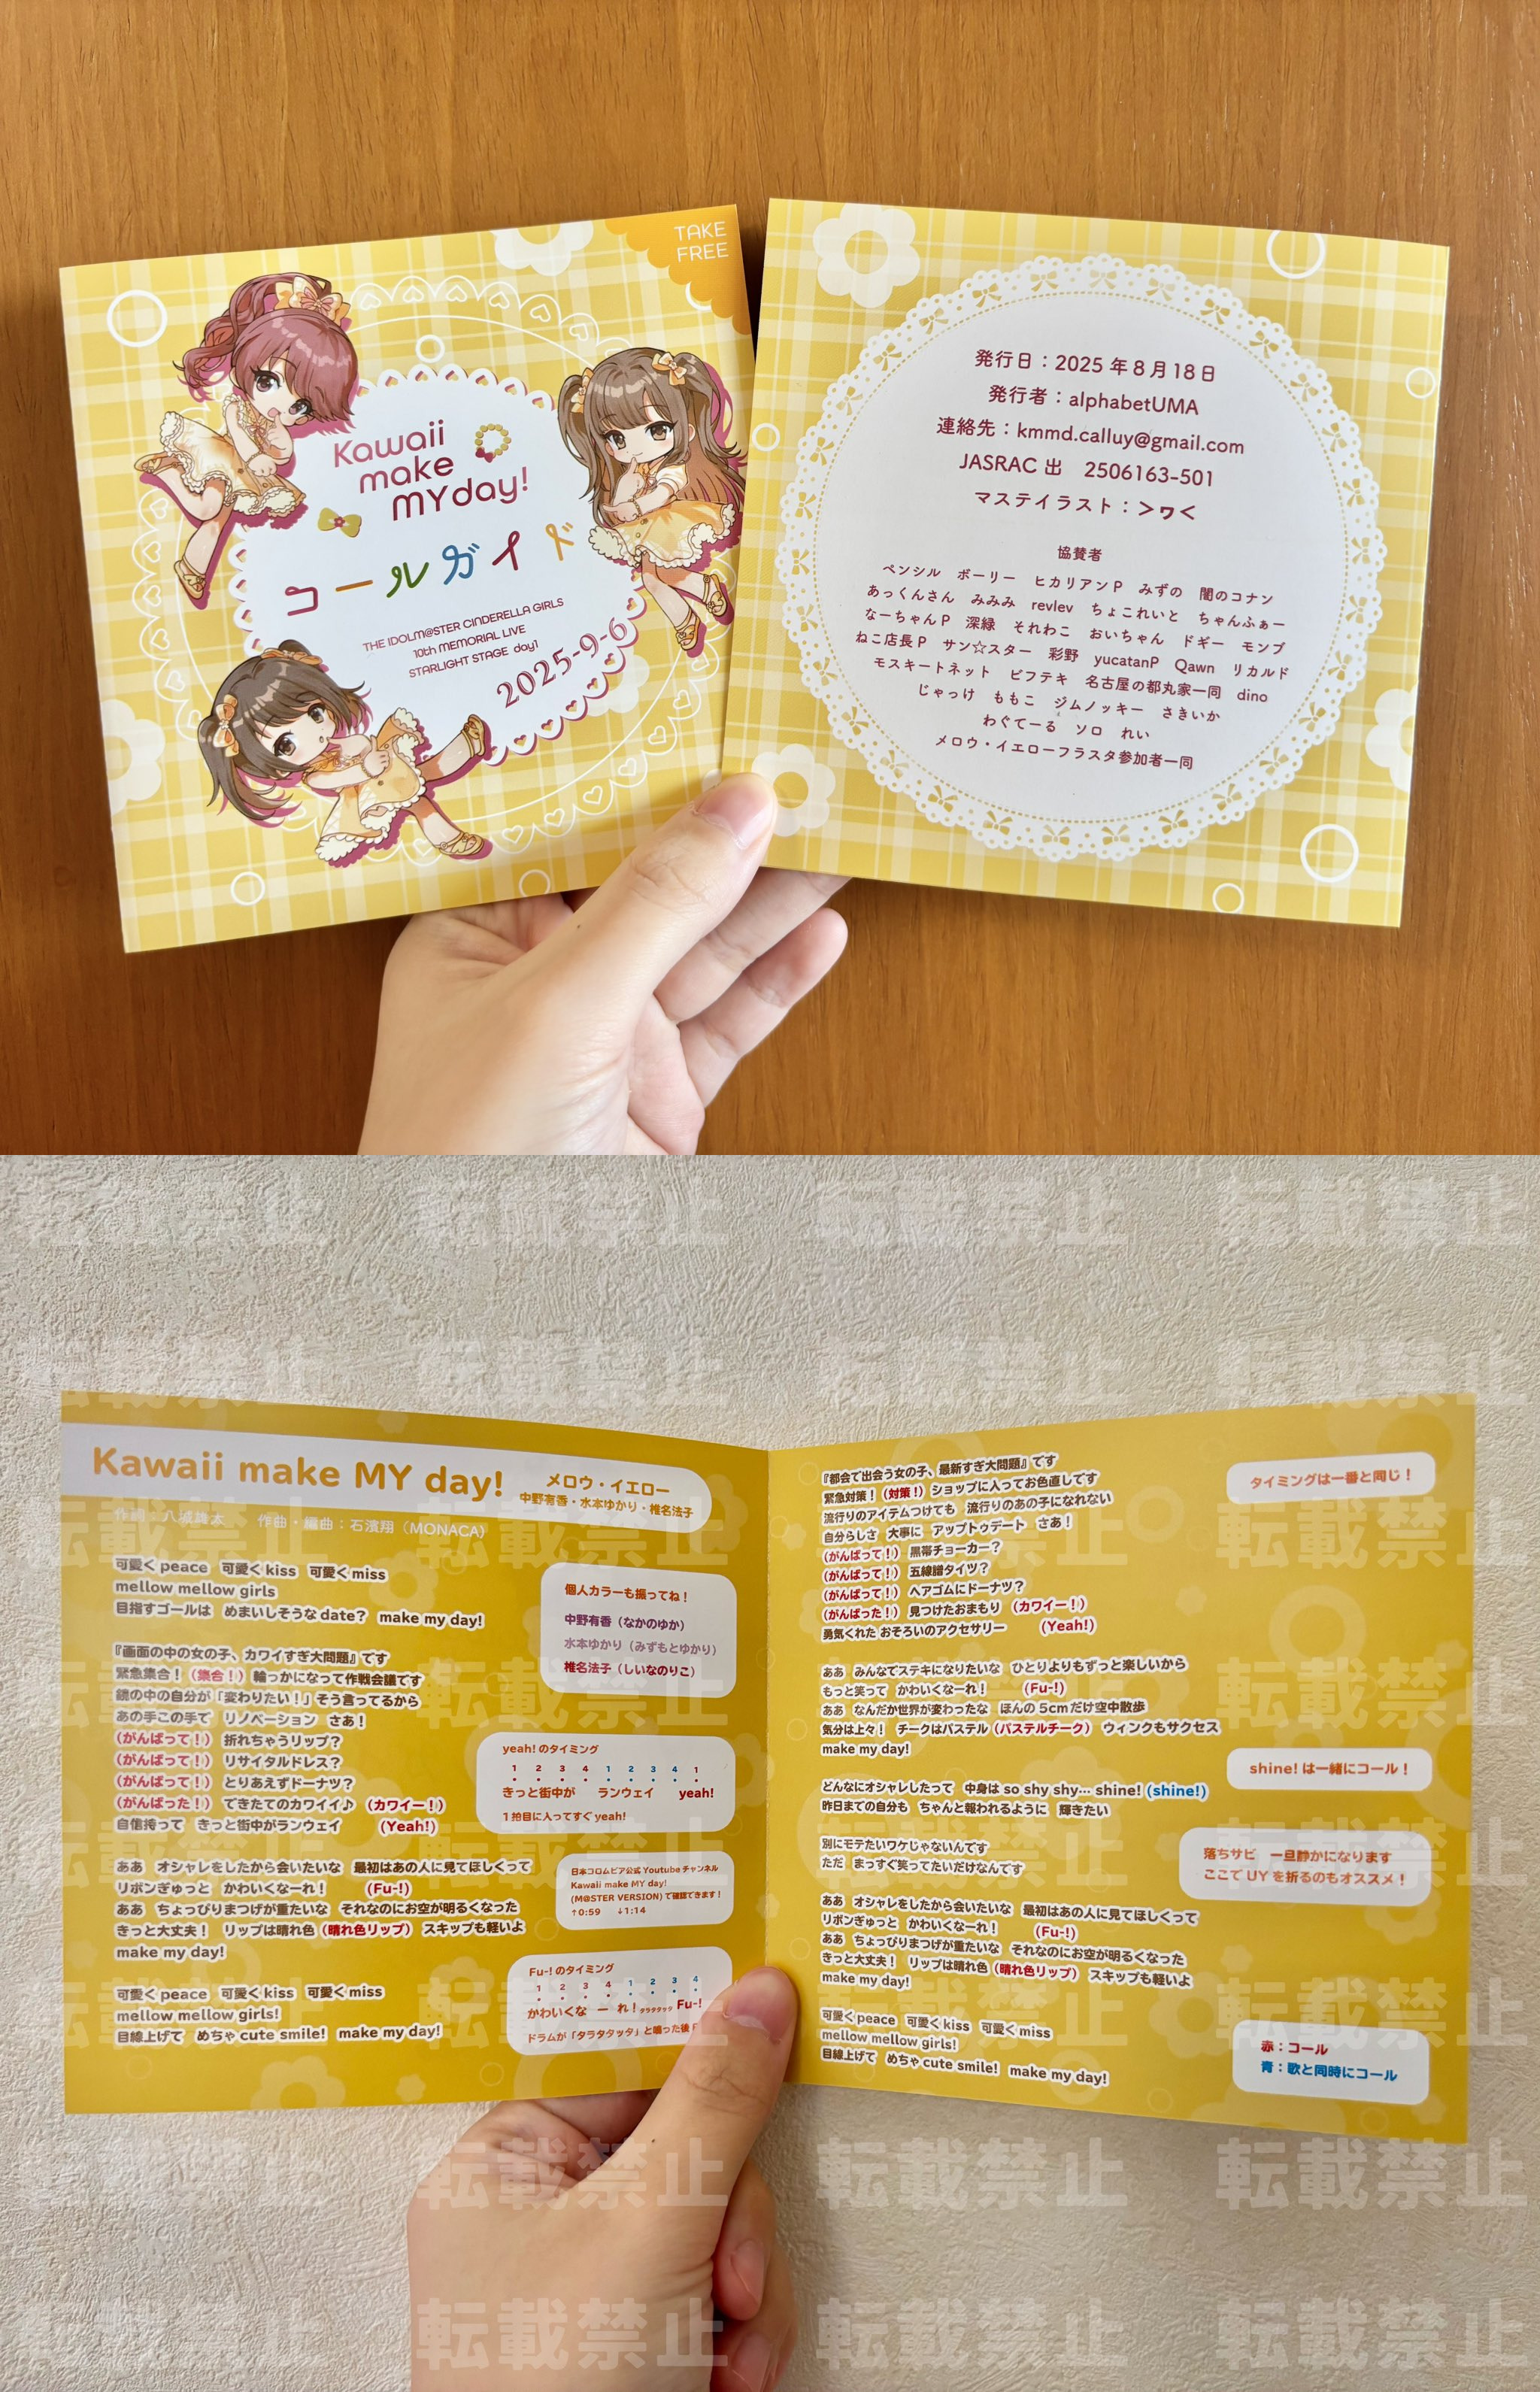 TAKE
FREE
Kawaii
make
MYday!
コールガイド
THE IDOLM@STER CINDERELLA GIRLS
10th MEMORIAL LIVE
STARLIGHT STAGE day1
2025-9-6
発行日：2025年8月18日
発行者：alphabetUMA
連絡先：kmmd.calluy@gmail.com
JASRAC 出 2506163-501
マステイラスト：＞ヮ＜
協賛者
ペンシル ボーリー ヒカリアンP みずの 闇のコナン
あっくんさん みみみ revlev ちょこれいと ちゃんふぁー
なーちゃんP 深緑 それわこ おいちゃん ドギー モンブ
ねこ店長P サン☆スター 彩野 yucatanP Qawn リカルド
モスキートネット ビフテキ 名古屋の都丸家一同 dino
じゃっけ ももこ ジムノッキー さきいか
わぐてーる ソロ れい
メロウ・イエローフラスタ参加者一同
Kawaii make MY day!
メロウ・イエロー
中野有香・水本ゆかり・椎名法子
作曲・編曲：石濱翔（MONACA）
可愛くpeace 可愛くkiss 可愛くmiss
mellow mellow girls
目指すゴールは めまいしそうなdate? make my day!
『画面の中の女の子、カワイすぎ大問題』です
緊急集合！（集合！）輪っかになって作戦会議です
鏡の中の自分が「変わりたい！」そう言ってるから
あの手この手で リノベーション さあ！
（がんばって！）折れちゃうリップ？
（がんばって！）リサイタルドレス？
（がんばって！）とりあえずドーナツ？
（がんばった！）できたてのカワイイ♪（カワイー！）
自信持って きっと街中がランウェイ （Yeah!）
ああ オシャレをしたから会いたいな 最初はあの人に見てほしくって
リボンぎゅっと かわいくなーれ！ （Fu-!）
ああ ちょっぴりまつげが重たいな それなのにお空が明るくなった
きっと大丈夫！ リップは晴れ色（晴れ色リップ） スキップも軽いよ
make my day!
可愛くpeace 可愛くkiss 可愛くmiss
mellow mellow girls!
目線上げて めちゃcute smile! make my day!
個人カラーも振ってね！
中野有香（なかのゆか）
水本ゆかり（みずもとゆかり）
椎名法子（しいなのりこ）
yeah! のタイミング
1 2 3 4 1 2 3 4 1
きっと街中が ランウェイ yeah!
1拍目に入ってすぐyeah!
日本コロムビア公式Youtubeチャンネル
Kawaii make MY day!
(M@STER VERSION)で確認できます！
↑0:59 ↓1:14
Fu-! のタイミング
1 2 3 4 1 2 3 4
かわいくな ー れ！タラタタッタ Fu-!
ドラムが「タラタタッタ」と鳴った後
『都会で出会う女の子、最新すぎ大問題』です
緊急対策！（対策！）ショップに入ってお色直しです
流行りのアイテムつけても 流行りのあの子になれない
自分らしさ 大事に アップトゥデート さあ！
（がんばって！）黒帯チョーカー？
（がんばって！）五線譜タイツ？
（がんばって！）ヘアゴムにドーナツ？
（がんばった！）見つけたおまもり（カワイー！）
勇気くれた おそろいのアクセサリー （Yeah!）
ああ みんなでステキになりたいな ひとりよりもずっと楽しいから
もっと笑って かわいくなーれ！ （Fu-!）
ああ なんだか世界が変わったな ほんの5cmだけ空中散歩
気分は上々！ チークはパステル（パステルチーク） ウィンクもサクセス
make my day!
どんなにオシャレしたって 中身は so shy shy… shine! (shine!)
昨日までの自分も ちゃんと報われるように 輝きたい
別にモテたいワケじゃないんです
ただ まっすぐ笑ってたいだけなんです
ああ オシャレをしたから会いたいな 最初はあの人に見てほしくって
リボンぎゅっと かわいくなーれ！ （Fu-!）
ああ ちょっぴりまつげが重たいな それなのにお空が明るくなった
きっと大丈夫！ リップは晴れ色（晴れ色リップ） スキップも軽いよ
make my day!
可愛くpeace 可愛くkiss 可愛くmiss
mellow mellow girls!
目線上げて めちゃcute smile! make my day!
タイミングは一番と同じ！
shine! は一緒にコール！
落ちサビ 一旦静かになります
ここでUYを折るのもオススメ！
赤：コール
青：歌と同時にコール
転載禁止